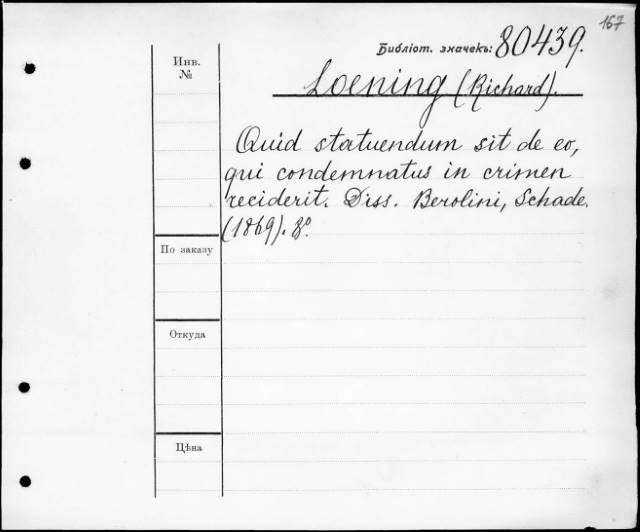 167
Библіот. значекъ: 80439.
Инв.
№
Loening (Richard).
Quid statuendum sit de eo,
qui condemnatus in crimen
reciderit. Diss. Berolini, Schade.
(1869). 8°.
По заказу
Откуда
Цѣна